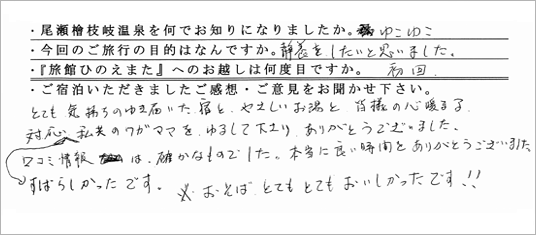 ・尾瀬檜枝岐温泉を何でお知りになりましたか。ゆこゆこ
・今回のご旅行の目的はなんですか。静養をしたいと思いました。
・『旅館ひのえまた』へのお越しは何度目ですか。 初回
・ご宿泊いただきましたご感想・ご意見をお聞かせ下さい。
とても 気持ちのゆき届いた 宿と、やさしいお湯と 皆様の心暖まる
対応 私共のワガママを ゆるして下さり、ありがとうございました。
口コミ情報 は、確かなものでした。本当に良い時間をありがとうございました
すばらしかったです。 ※ おそば とてもとても おいしかったです!!